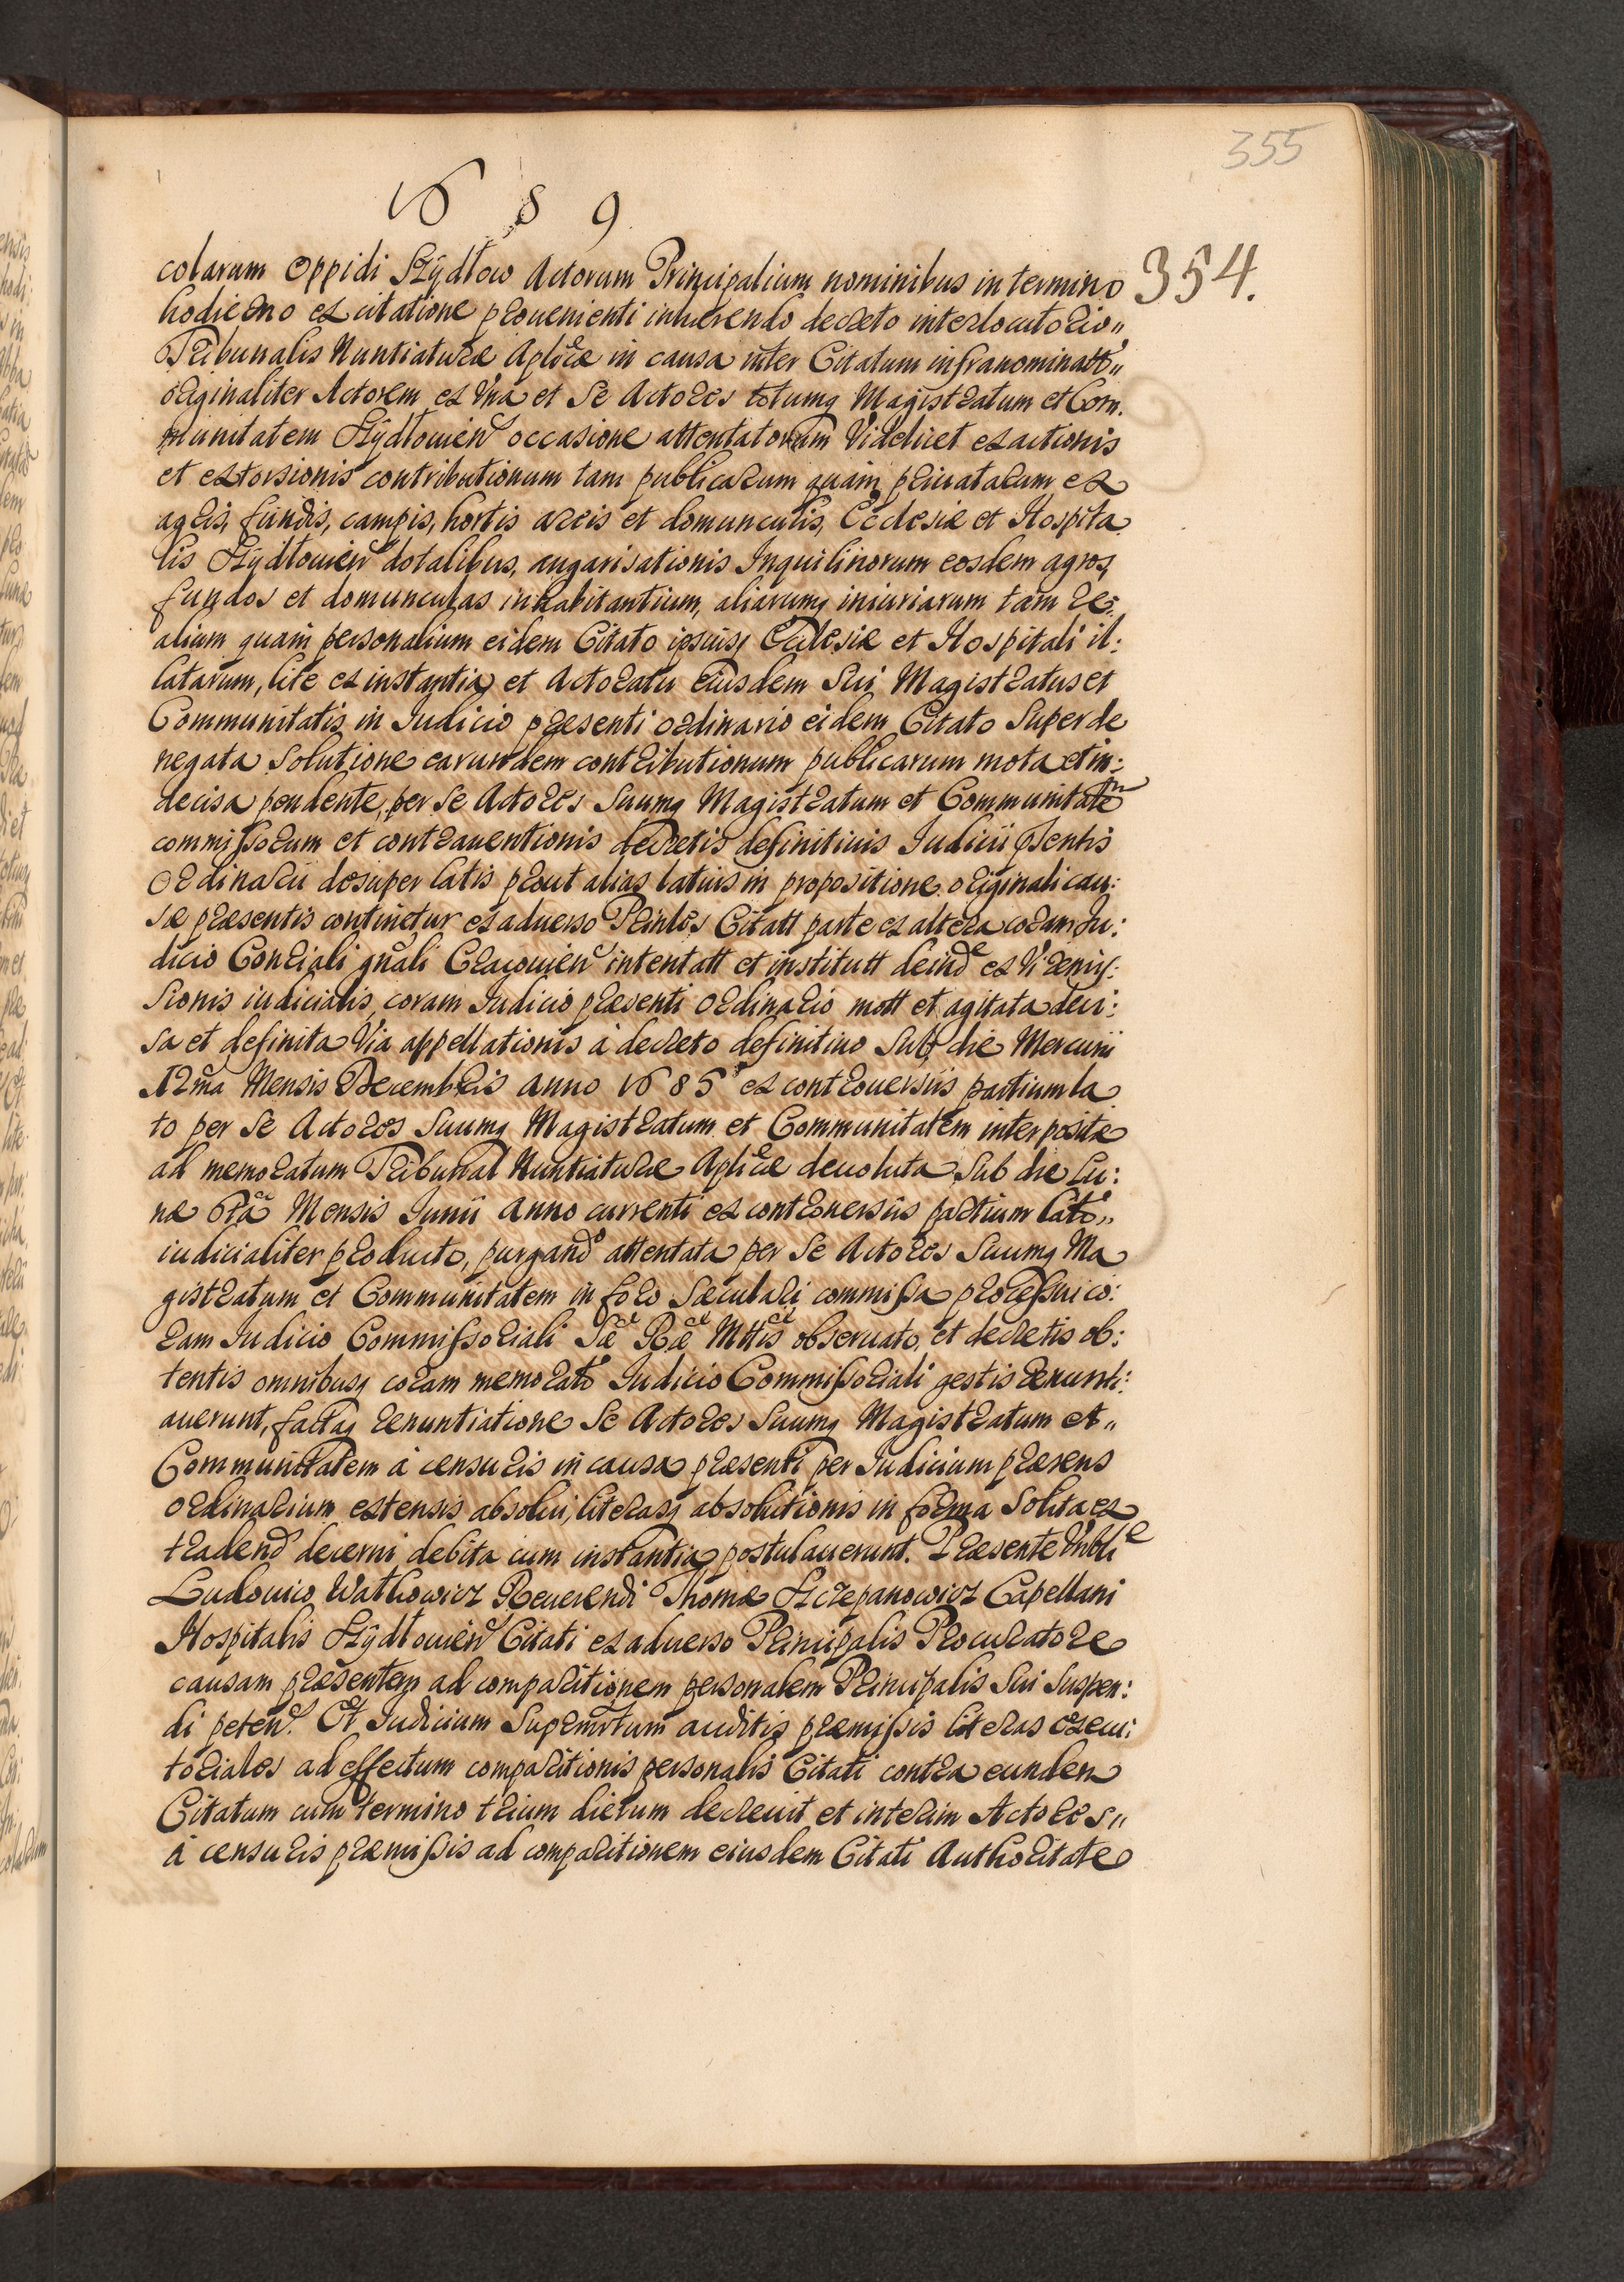 355
1689
354.
colarum Oppidi Szÿdłow Actorum Principalium nominibus in termino
hodierno ex citatione prouenienti inhærendo decreto interlocutorio„
Tribunalis Nuntiaturæ Aplicæ in causa inter Citatum infranominatt„
originaliter Actorem ex Vna et Se Actores totumq Magistratum et Com.
munitatem Szÿdłouien occasione attentatorum Videlicet exactionis
et extorsionis contributionum tam publicarum quam priuatarum ex
agris, fundis, campis, hortis areis et domunculis, Ecclesiæ et Hospita
lis Szÿdłouien dotalibus, angarisationis Inquilinorum eosdem agros,
fundos et domunculas inhabitantium, aliarumq iniuriarum tam re:
alium quam personalium eidem Citato ipsiusq Ecclesiæ et Hospitali il:
latarum, lite ex instantia et Actoratu eiusdem Sui Magistratus et
Communitatis in Iudicio præsenti ordinario eidem Citato Super de
negata Solutione earundem contributionum publicarum mota et in:
decisa pendente, per Se Actores Suumq Magistratum et Communitatem
commissorum et contrauentionis decretis definitiuis Iudicii pñtis
Ordinarii desuper latis prout alias latius in propositione originali cau:
sæ præsentis continetur ex aduerso Prinles Citatt parte ex altera coram Iu:
dicio Conziali gnali Cracouien intentatt et institutt deind ex Vi remis:
sionis iudicialis coram Iudicio præsenti Ordinario mott et agitata deci:
sa et definita Via appellationis à decreto definitiuo Sub die Mercurii
12ma Mensis Decembris Anno 1685 ex controuersiis partium la
to per Se Actores Suumq Magistratum et Communitatem interpositæ
ad memoratum Tribunal Nuntiaturæ Aplicæ deuoluta Sub die Lu:
næ 6ta Mensis Iunii Anno currenti ex controuersiis partium lato„
iudicialiter producto, purgand attentata per Se Actores Suumq Ma
gistratum et Communitatem in foro Sæculari commissa processui co:
ram Iudicio Commissoriali Sæ Ræ Mttis obseruato, et decretis ob:
tentis omnibusq coram memorato Iudicio Commissoriali gestis renunti:
auerunt, factaq renuntiatione Se Actores Suumq Magistratum et„
Communitatem à censuris in causa præsenti per Iudicium præsens
ordinarium extensis absolui, literasq absolutionis in forma Solita ex
tradend decerni debita cum instantia postulauerunt. Præsente Nbli
Ludouico Wathowicz Reuerendi Thomæ Szczepanowicz Capellani
Hospitalis Szÿdłouien Citati ex aduerso Principalis Procuratore
causam præsentem ad comparitionem personalem Principalis Sui Suspen:
di peten. Et Iudicium Supremtum auditis præmissis literas execu:
toriales ad effectum comparitionis personalis Citati contra eundem
Citatum cum termino trium dierum decreuit et interim Actores„
à censuris præmissis ad comparitionem eiusdem Citati Authoritate